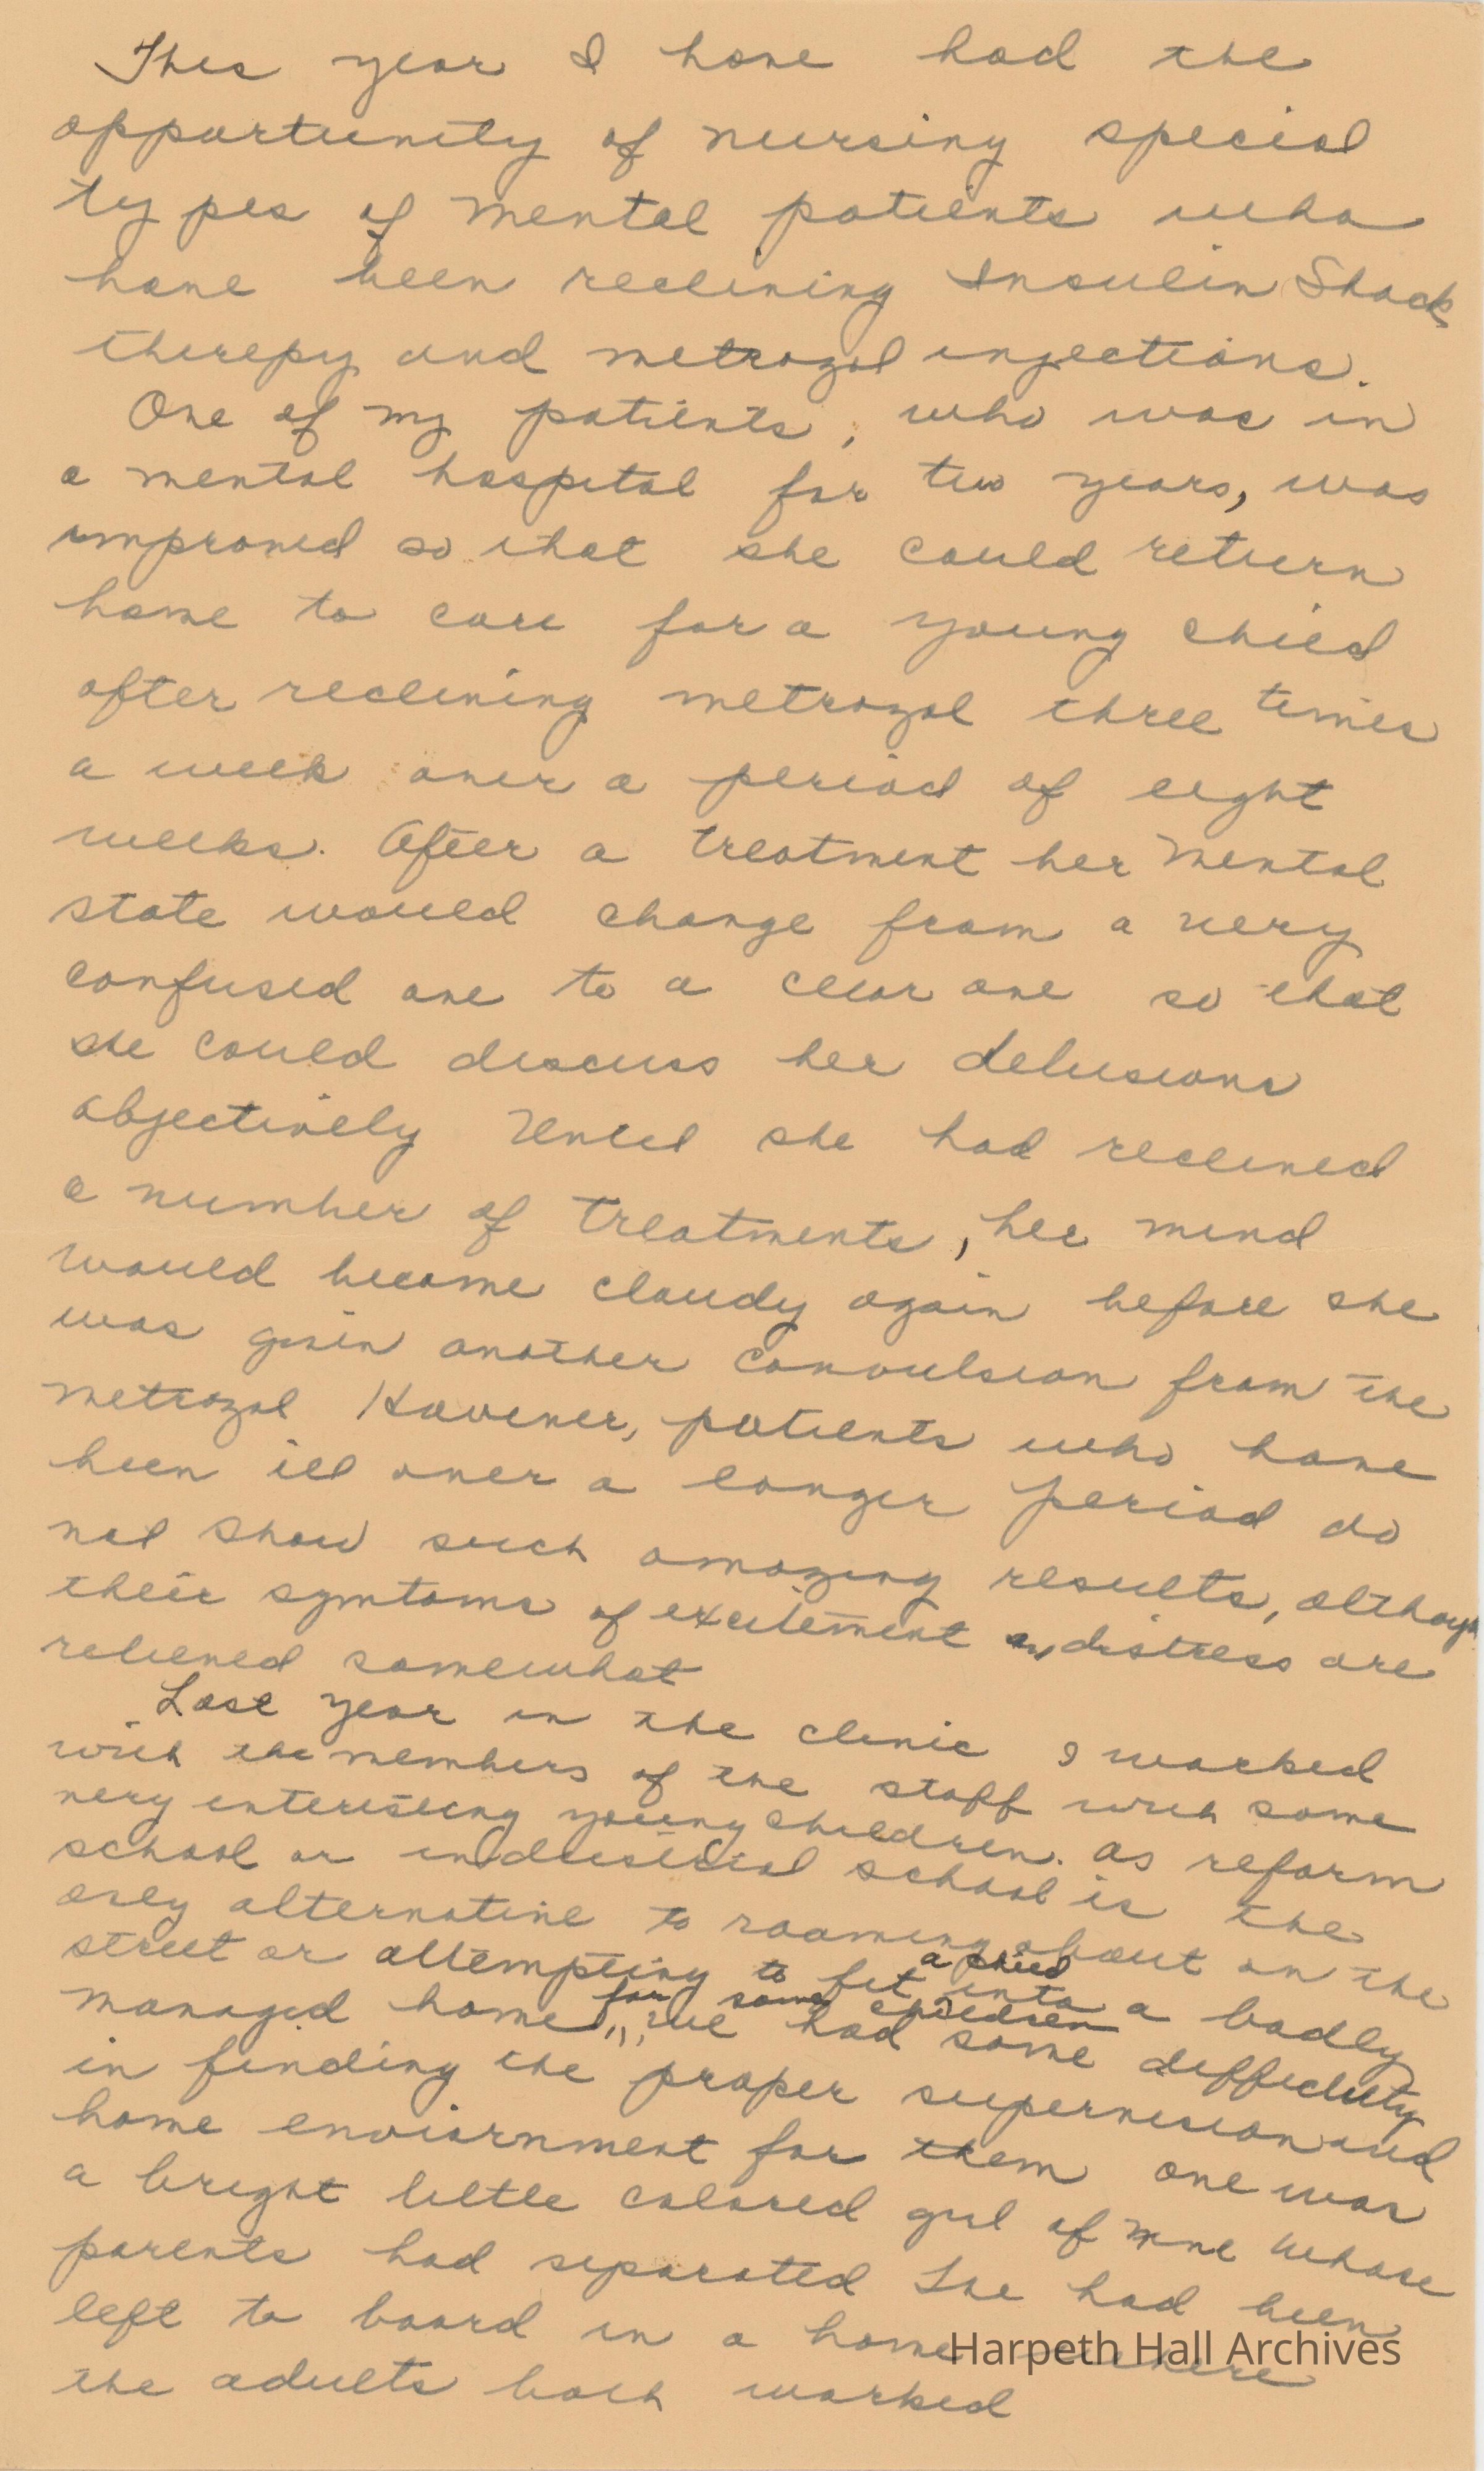 This year I have had the
opportunity of nursing special
types of mental patients who
have been receiving Insulin Shock
therepy and metrozol injections.
One of my patients, who was in
a mental hospital for two years, was
improved so that she could return
home to care for a young child
after receiving metrozol three times
a week over a period of eight
weeks. After a treatment her mental
state would change from a very
confused one to a clear one so that
she could discuss her delusions
objectively Until she had received
a number of treatments, her mind
would become cloudy again before she
was given another convulsion from the
metrozol However, patients who have
been ill over a longer period do
not show such amazing results, although
their symtoms of excitement or distress are
relieved somewhat
Last year in the clinic I worked
with the members of the staff with some
very interesting young children. As reform
school or industrial school is the
only alternative to roaming about on the
street or attempting to fit a child into a badly
managed home, for some children we had some difficulty
in finding the proper supervision and
home enviornment for them one was
a bright little colored girl of nine whose
parents had separated She had been
left to board in a home where
the adults both worked
Harpeth Hall Archives